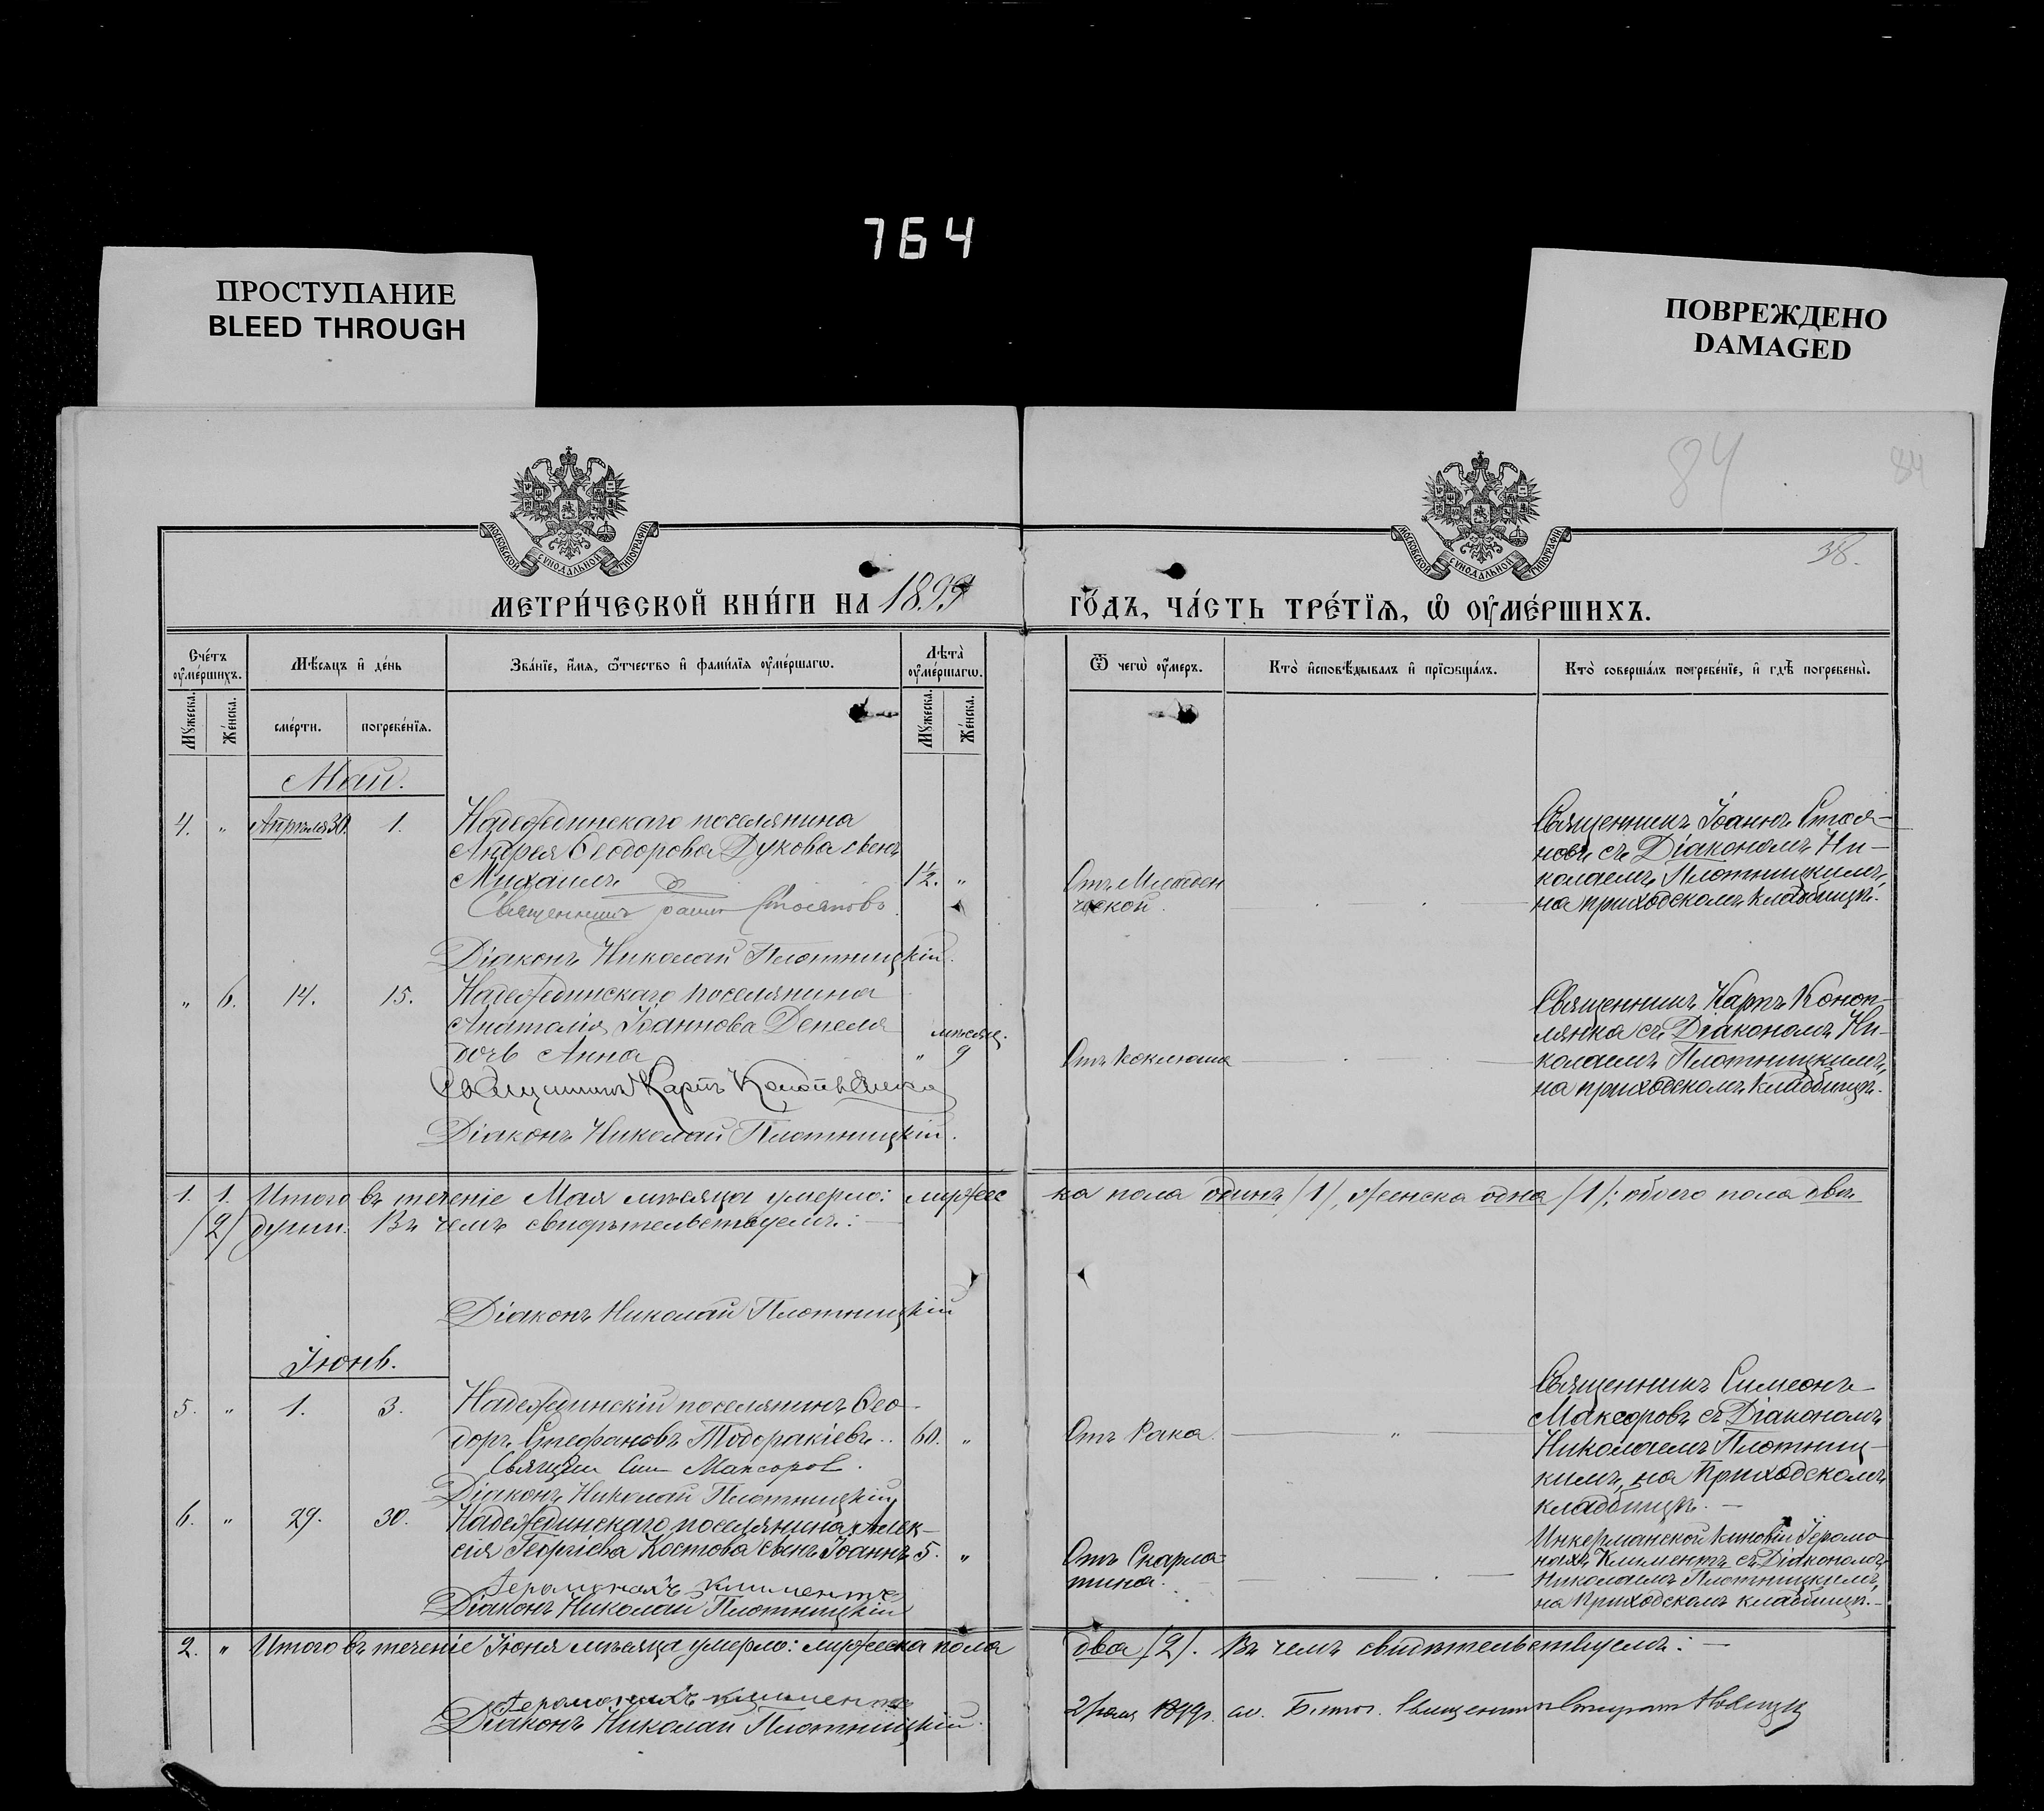 764
ПРОСТУПАНИЕ
BLEED THROUGH
ПОВРЕЖДЕНО
DAMAGED
84
84
38.
МОСКОВСКОЙ СѴНОДАЛЬНОЙ ТИПОГРАФІИ
МОСКОВСКОЙ СѴНОДАЛЬНОЙ ТИПОГРАФІИ
МЕТРИ́ЧЕСКОЙ КНИ́ГИ НА 1899
ГО́ДЪ, ЧА́СТЬ ТРЕ́ТЇѦ, Ѡ҆ ОУ҆МЕ́РШИХЪ.
Сче́тъ оу҆ме́ршихъ.
Мѣ́сѧцъ и҆ де́нь
Зва́нїе, и҆́мѧ, ѻ҆́тчество и҆ фами́лїѧ оу҆ме́ршагѡ.
Лѣ́та оу҆ме́ршагѡ.
Ѿ чегѡ̀ оу҆́меръ.
Кто̀ и҆сповѣ́дывалъ и҆ прїѡбща́лъ.
Кто̀ соверша́лъ погребе́нїе, и҆ гдѣ̀ погребены̀.
Мꙋ́жеска.
Же́нска.
сме́рти.
погребе́нїѧ.
Мꙋ́жеска.
Же́нска.
Май.
4. " Апрѣля 30. 1. Надеждинскаго поселянина
Андрея Ѳеодорова Дукова сынъ
Михаилъ 1½. "
Священникъ Іоаннъ Стояновъ
Діаконъ Николай Плотницкій.
Отъ Младен
ческой.
Священникъ Іоаннъ Стоя-
новъ съ Діакономъ Ни-
колаемъ Плотницкимъ,
на приходскомъ кладбищѣ.
" 6. 14. 15. Надеждинскаго поселянина
Анатолія Іоаннова Депеля
дочь Анна " мѣсяц. 9
Священникъ Карпъ Конопълянка
Діаконъ Николай Плотницкій.
Отъ Коклюша
Священникъ Карпъ Коноп-
лянка съ Діакономъ Ни-
колаемъ Плотницкимъ,
на приходскомъ кладбищѣ.
1. 1. Итого въ теченіе Мая мѣсяца умерло: мужес
ка пола одинъ /1/, женска одна /1/; обоего пола двѣ
/2/ души. Въ чемъ свидѣтельствуемъ:
Діаконъ Николай Плотницкій
Іюнь.
5. " 1. 3. Надеждинскій поселянинъ Ѳео-
доръ Стефановъ Тодоракіевъ.. 60. "
Священ Сим Максоров.
Діаконъ Николай Плотницкій
Отъ Рака.
Священникъ Симеонъ
Максоровъ съ Діакономъ
Николаемъ Плотниц-
кимъ, на приходскомъ
кладбищѣ.
6. " 29. 30. Надеждинскаго поселянина Алек-
сія Георгіева Костова сынъ Іоаннъ 5. "
Іеромонахъ Климентъ
Діаконъ Николай Плотницкій
Отъ Скарла-
тина.
Инкерманской Киновіи Іеромо-
нахъ Климентъ съ Діакономъ
Николаемъ Плотницкимъ,
на приходскомъ кладбищѣ.
2. " Итого въ теченіе Іюня мѣсяца умерло: мужеска пола
два /2/. Въ чемъ свидѣтельствуемъ:
Іеромонахъ Климентъ
Діаконъ Николай Плотницкій.
1899г. Священникъ